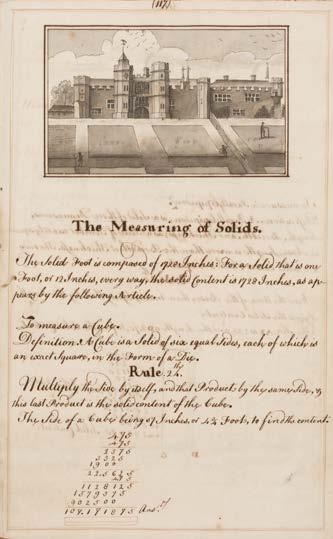 (117)
The Measuring of Solids.
The Solid Foot is composed of 1728 Inches: For a Solid that is one
Foot, or 12 Inches, every way, the solid Content is 1728 Inches, as ap-
pears by the following Article.
To measure a Cube.
Definition. A Cube is a Solid of six equal Sides, each of which is
an exact Square, in the Form of a Die.
Rule
Multiply the Side by itself, and that Product by the same Side, &
this last Product is the solid content of the Cube.
The Side of a Cube being 57 Inches, or 4¾ Foot, to find the content.
475
475
2375
3325
1900
225625
475
1128125
1579375
902500
107.171875 Ans.